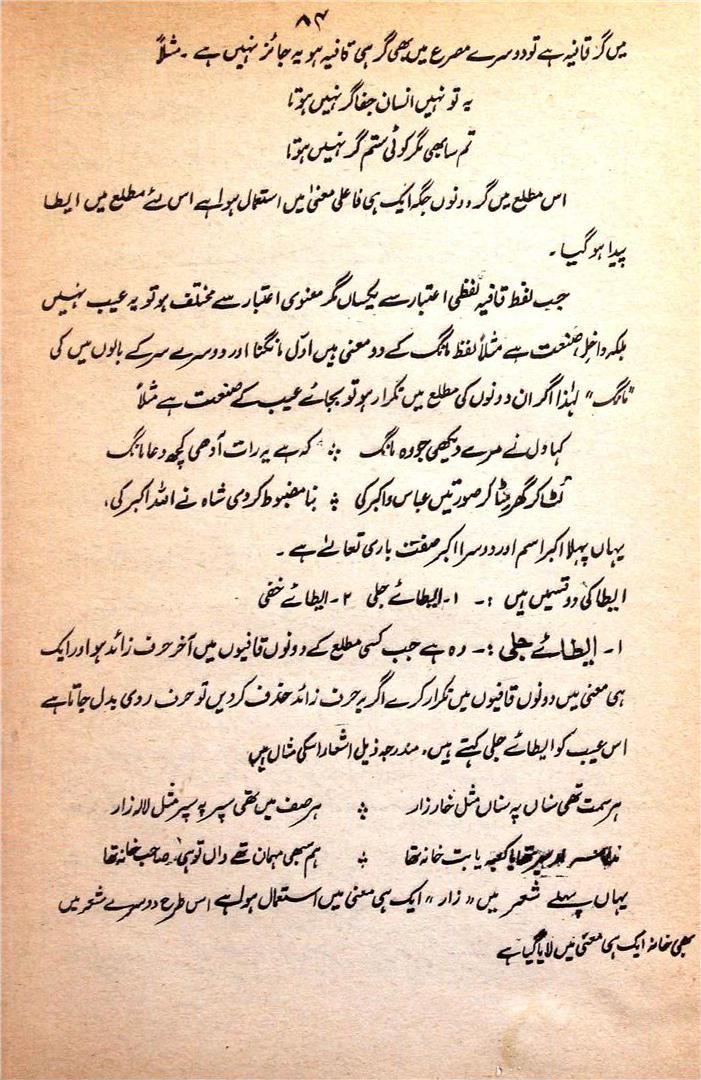 ۸۳
میں گر قافیہ ہے تو دوسرے مصرع میں بھی گر ہی قافیہ ہو یہ جائز نہیں ہے ۔ مثلاً
یہ تو نہیں انسان جفا گر نہیں ہوتا
تم سا بھی مگر کوئی ستم گر نہیں ہوتا
اس مطلع میں گر دونوں جگہ ایک ہی فاعلی معنیٰ میں استعمال ہوا ہے اس لئے مطلع میں ایطا
پیدا ہو گیا ۔
جب لفظ قافیہ لفظی اعتبار سے یکساں مگر معنوی اعتبار سے مختلف ہو تو یہ عیب نہیں
بلکہ داخلِ صنعت ہے مثلاً لفظ مانگ کے دو معنی ہیں اوّل مانگنا اور دوسرے سر کے بالوں میں کی
"مانگ" لہٰذا اگر ان دونوں کی مطلع میں تکرار ہو تو بجائے عیب کے صنعت ہے مثلاً
کہا دل نے مرے دیکھی جو وہ مانگ ؞ کہ ہے یہ رات آدھی کچھ دعا مانگ
لٹ کر گھر مٹا کر صورتیں عباس و اکبر کی ؞ بنا مضبوط کر دی شاہ نے اللہ اکبر کی ،
یہاں پہلا اکبر اسم اور دوسرا اکبر صفت باری تعالےٰ ہے ۔
ایطا کی دو قسمیں ہیں :۔ ۱۔ ایطائے جلی ۲۔ ایطائے خفی
۱۔ ایطائے جلی :۔ وہ ہے جب کسی مطلع کے دونوں قافیوں میں آخر حرف زائد ہو اور ایک
ہی معنی میں دونوں قافیوں میں تکرار کرے اگر یہ حرف زائد حذف کر دیں تو حرف روی بدل جاتا ہے
اس عیب کو ایطائے جلی کہتے ہیں ، مندرجہ ذیل اشعار اسکی مثال ہیں
ہر سمت تھی سناں پہ سناں مثل خار زار ؞ ہر صف میں تھی سپر پہ سپر مثل لالہ زار
تھا یا کعبہ یا بت خانہ تھا ؞ ہم سبھی مہمان تھے واں تو ہی صاحب خانہ تھا
یہاں پہلے شعر میں "زار" ایک ہی معنی میں استعمال ہوا ہے اس طرح دوسرے شعر میں
بھی خانہ ایک ہی معنی میں لایا گیا ہے